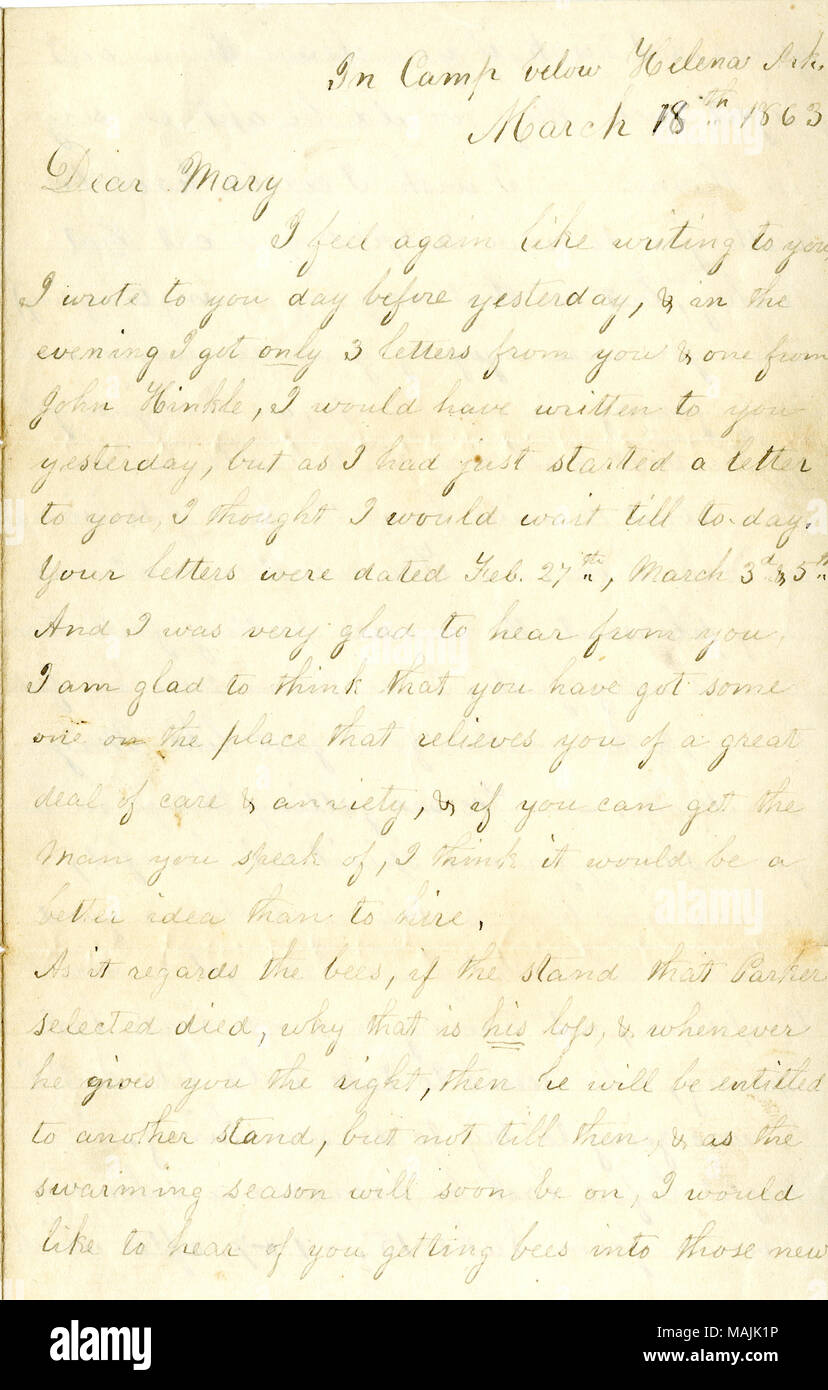 In Camp below Helena Ark.
March 18th 1863
Dear Mary
I feel again like writing to you,
I wrote to you day before yesterday, & in the
evening I got only 3 letters from you & one from
John Hinkle, I would have written to you
yesterday, but as I had just started a letter
to you, I thought I would wait till to-day.
Your letters were dated Feb. 27th, March 3d & 5th
And I was very glad to hear from you.
I am glad to think that you have got some
one on the place that relieves you of a great
deal of care & anxiety, & if you can get the
man you speak of, I think it would be a
better idea than to hire.
As it regards the bees, if the stand that Parker
selected died, why that is his loss, & whenever
he gives you the right, then he will be entitled
to another stand, but not till then, & as the
swarming season will soon be on, I would
like to hear of you getting bees into those new
alamy
Image ID: MAJK1P
www.alamy.com